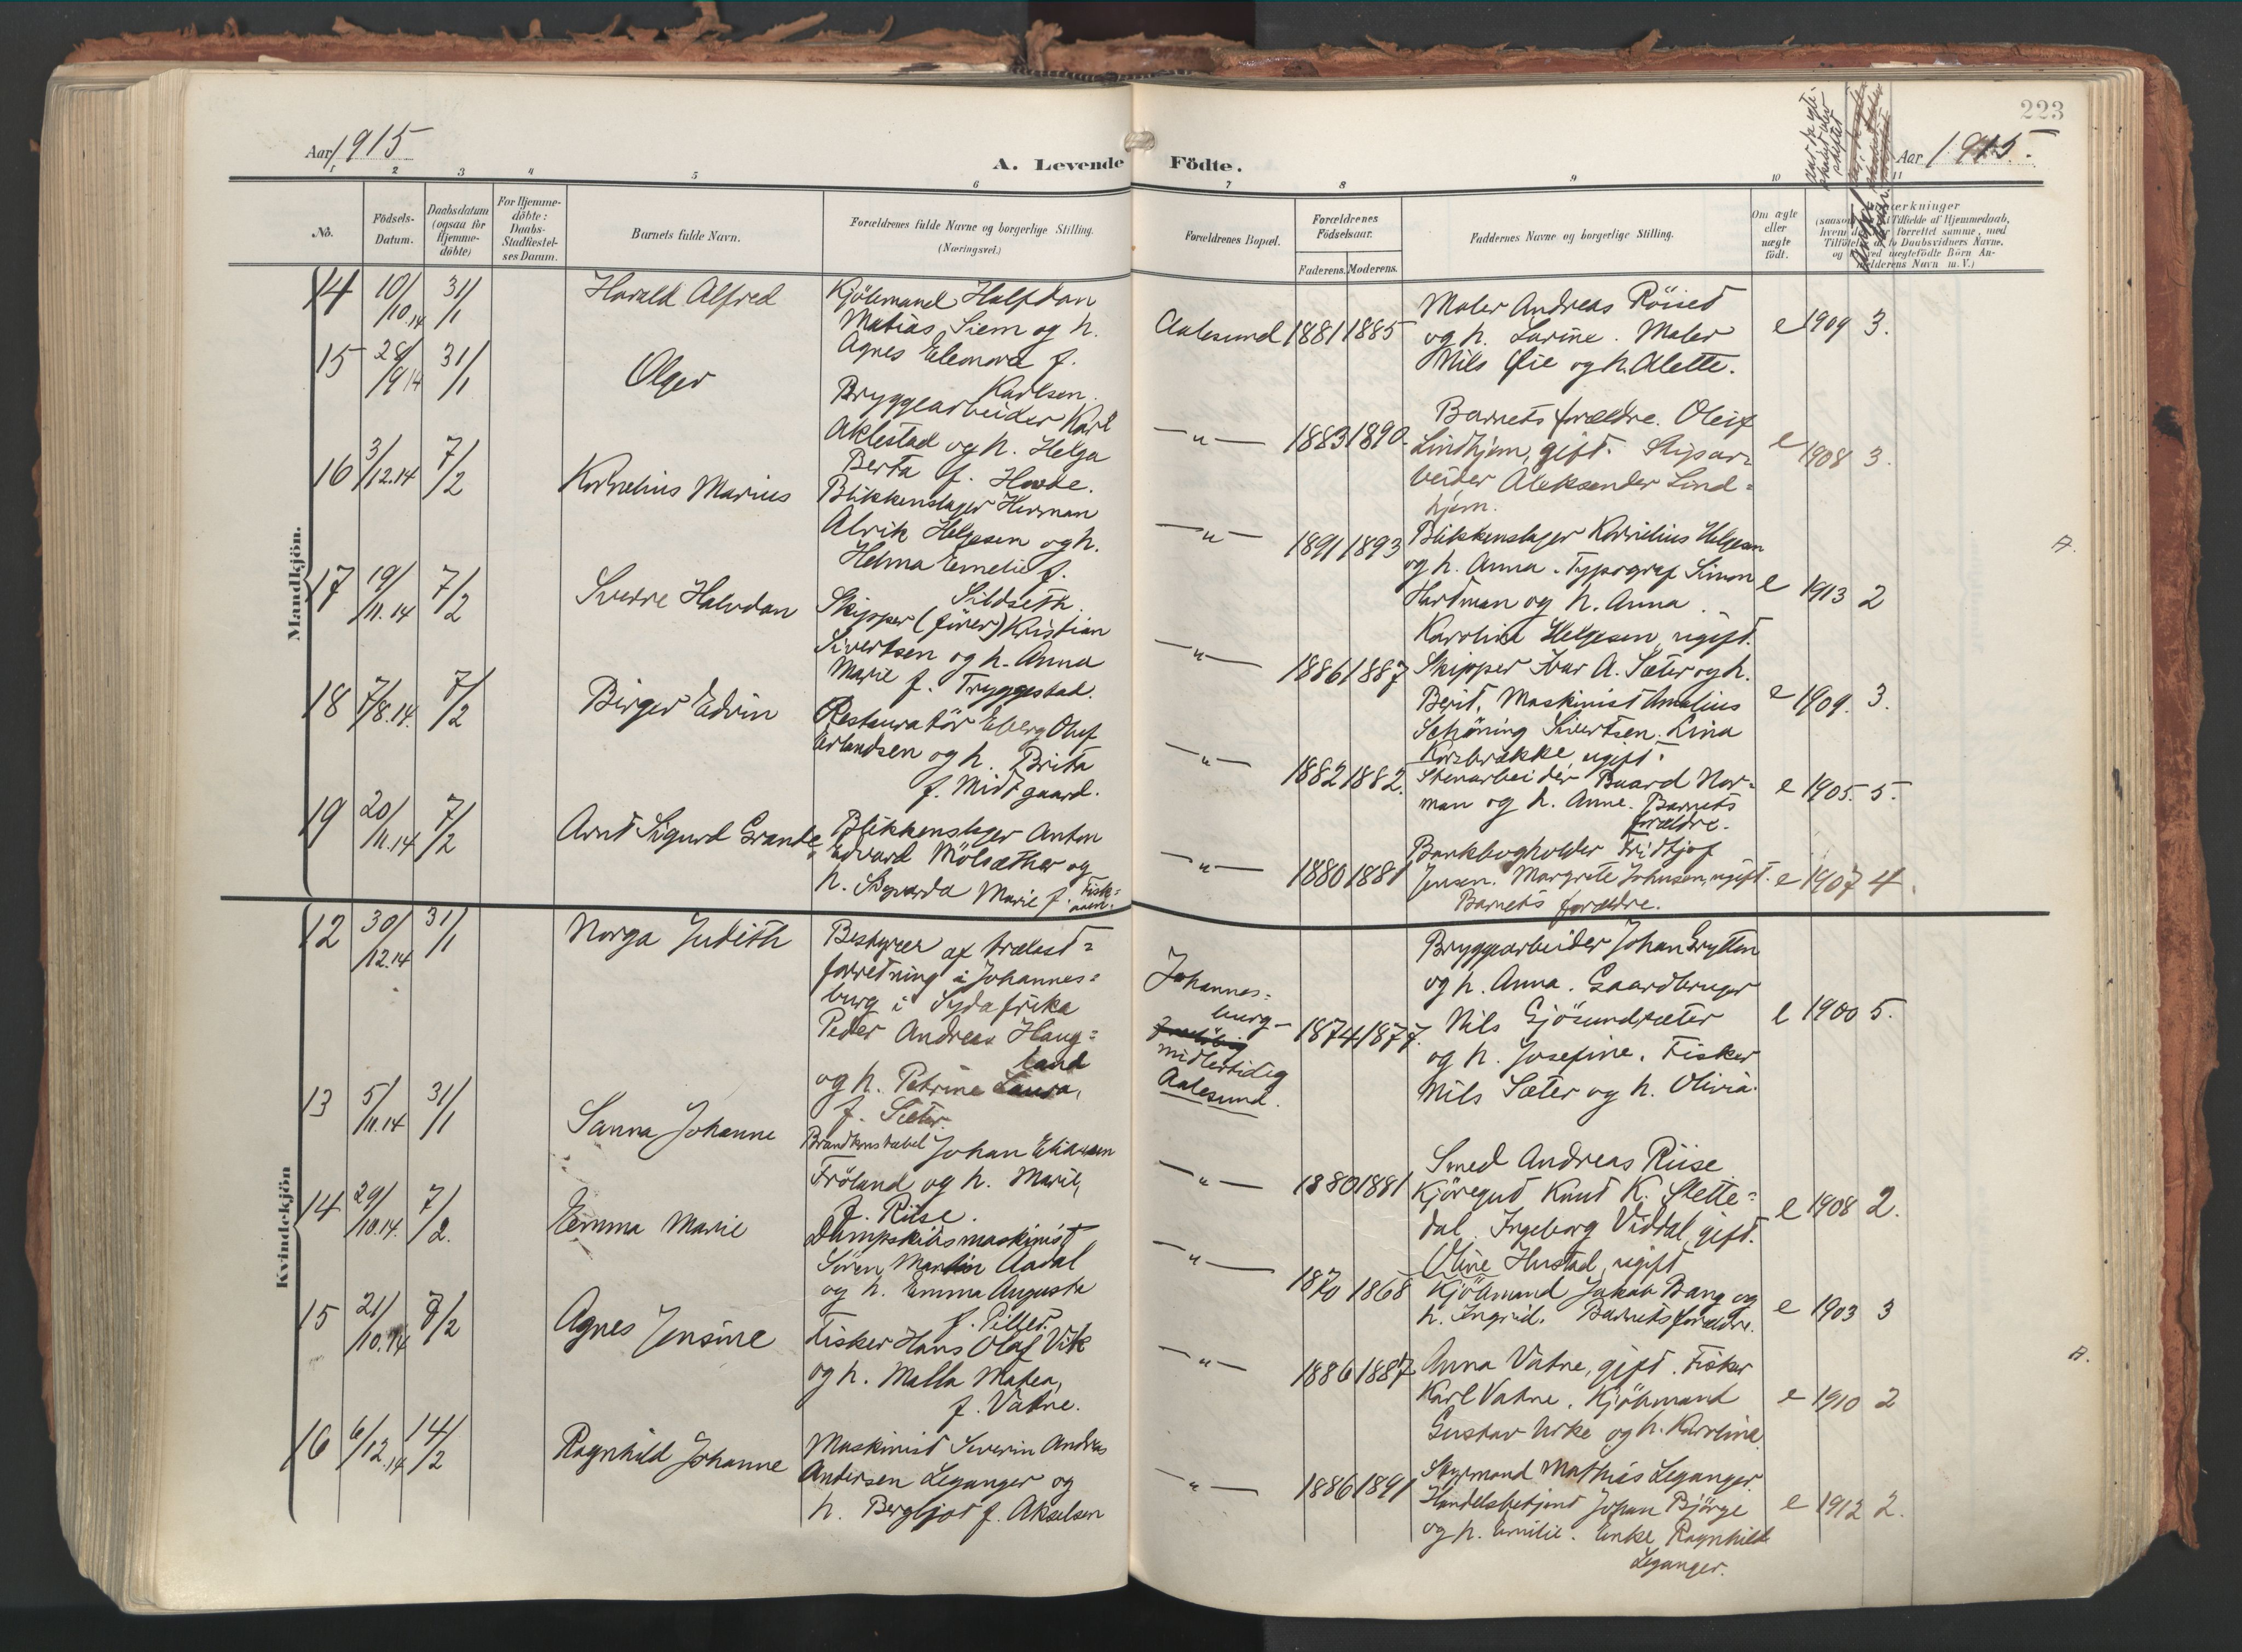 223
Aar 1915
A. Levende Födte.
Aar 1915.
1 2 3 4 5 6 7 8 9 10 11
No.
Födsels-Datum.
Daabsdatum (ogsaa for Hjemme-döbte)
For Hjemme-döbte: Daabs-Stadfæstel-ses Datum.
Barnets fulde Navn.
Forældrenes fulde Navne og borgerlige Stilling.
(Næringsvei.)
Forældrenes Bopæl.
Forældrenes Födselsaar.
Faderens. Moderens.
Faddernes Navne og borgerlige Stilling.
Om ægte eller uægte födt.
Mandkjön.
14 10/10 14 31/1 Harald Alfred
Kjöbmand Halfdan
Matias Siem og h.
Agnes Eleonora f.
Karlsen.
Aalesund 1881 1885
Maler Andreas Röised
og h. Larine. Maler
Nils Øie og h. Alette.
e 1909 3.
15 28/9 14 31/1 Olger
Bryggearbeider Karl
Aklestad og h. Helga
Berta f. Hovde.
—"— 1883 1890.
Barnets forældre. Oleif
Lindhjem, gift. Skipar-
beider Aleksander Lind-
hjem.
e 1908 3.
16 3/12.14 7/2 Kornelius Marius
Blikkenslager Herman
Alrik Helgesen og h.
Helma Emelie f.
Sildseth.
—"— 1891 1893
Blikkenslager Kornelius Helgesen
og h. Anna. Typograf Simon
Hartman og h. Anna.
Karolina Helgesen, ugift.
e 1913 2
17 19/11.14 7/2 Sverre Halvdan
Skipper (fører) Kristian
Sivertsen og h. Anna
Marie f. Tryggestad.
—"— 1886 1887
Skipper Ivar A. Sæter og h.
Berit. Maskinist Amalius
Schöning Sivertsen. Lina
Korsbrække, ugift.
e 1909. 3.
18 7/8.14. 7/2 Birger Edvin
Restauratör Eberg Oluf
Erlandsen og h. Brita
f. Midtgaard.
—"— 1882 1882.
Stenarbeider Baard Nor-
man og h. Anne. Barnets
forældre.
e 1905. 5.
19 20/11.14 7/2 Arnt Sigurd Grande
Blikkenslager Anton
Edvard Mölsæther og
h. Sigvarda Marie f.
—"— 1880 1881
Bankbogholder Fridtjof
Jensen. Margrete Johnsen, ugift.
Barnets forældre.
e 1907 4.
Kvindekjön
12 30/12.14 31/1 Norga Judith
Bestyrer af trælast-
forretning i Johannes-
burg i Sydafrika
Peder Andreas Haug-
land
og h. Petrine Laura,
f. Sæter.
Johannes-
burg —
midlertidig
Aalesund.
1874 1877.
Bryggearbeider Johan Grytten
og h. Anna. Gaardbruger
Nils Gjösundsæter
og h. Josefine. Fisker
Nils Sæter og h. Olivia.
e 1900 5.
13 5/11.14 31/1 Sanna Johanne
Brandkonstabel Johan Eliassen
Fröland og h. Marie,
f. Riise.
—"— 1880 1881
Smed Andreas Riise
Kjöregut Knut K. Slette-
dal. Ingeborg Viddal, gift.
Oline Hustad, ugift
e 1908 2.
14 29/10.14. 7/2. Emma Marie
Dampskibsmaskinist
Sören Martin Aadal
og h. Emma Augusta
f. Pilled.
—"— 1870 1868
Kjöbmand Jakob Bang og
h. Ingrid. Barnets forældre.
e 1903 3
15 21/10.14 7/2 Agnes Jensine
Fisker Hans Olaf Vik
og h. Malla Matea,
f. Vatne.
—"— 1886 1887
Anna Vatne, gift. Fisker
Karl Vatne. Kjöbmand
Gustav Urke og h. Karoline.
e 1910 2
16 6/12.14 14/2 Ragnhild Johanne
Maskinist Severin Andreas
Andersen Leganger og
h. Bergljot f. Akselsen
—"— 1886 1891
Styrmand Mathias Leganger.
Handelsbetjent Johan Björge
og h. Emilie. Enke Ragnhild
Leganger.
e 1912 2.